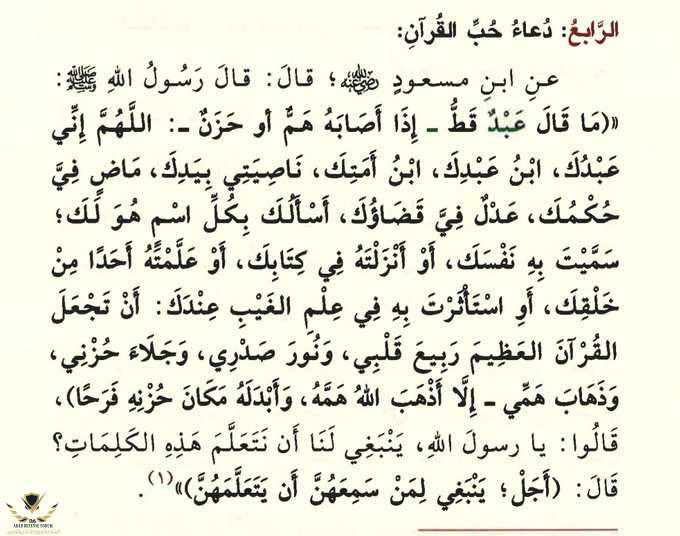 الرَّابعُ: دُعاءُ حُبِّ القُرآنِ:
عنِ ابنِ مسعودٍ رضي الله عنه؛ قالَ: قالَ رَسُولُ اللهِ ﷺ:
«(مَا قَالَ عَبْدٌ قَطُّ ـ إِذَا أَصَابَهُ هَمٌّ أو حَزَنٌ ـ: اللَّهُمَّ إِنِّي
عَبْدُكَ، ابْنُ عَبْدِكَ، ابْنُ أَمَتِكَ، نَاصِيَتِي بِيَدِكَ، مَاضٍ فِيَّ
حُكْمُكَ، عَدْلٌ فِيَّ قَضَاؤُكَ، أَسْأَلُكَ بِكُلِّ اسْمٍ هُوَ لَكَ؛
سَمَّيْتَ بِهِ نَفْسَكَ، أَوْ أَنْزَلْتَهُ فِي كِتَابِكَ، أَوْ عَلَّمْتَهُ أَحَدًا مِنْ
خَلْقِكَ، أَوِ اسْتَأْثَرْتَ بِهِ فِي عِلْمِ الغَيْبِ عِنْدَكَ: أَنْ تَجْعَلَ
القُرْآنَ العَظِيمَ رَبِيعَ قَلْبِي، وَنُورَ صَدْرِي، وَجَلَاءَ حُزْنِي،
وَذَهَابَ هَمِّي ـ إِلَّا أَذْهَبَ اللهُ هَمَّهُ، وَأَبْدَلَهُ مَكَانَ حُزْنِهِ فَرَحًا)،
قَالُوا: يا رسولَ اللهِ، يَنْبَغِي لَنَا أَن نَتَعَلَّمَ هَذِهِ الكَلِمَاتِ؟
قَالَ: (أَجَلْ؛ يَنْبَغِي لِمَنْ سَمِعَهُنَّ أَن يَتَعَلَّمَهُنَّ)»(١).
ARAB DEFENSE FORUM